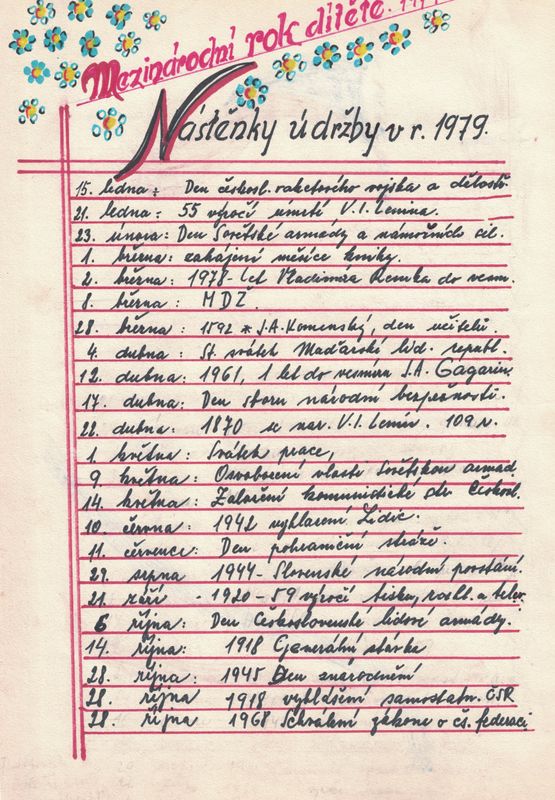 Mezinárodní rok dítěte. 1979
Nástěnky údržby v r. 1979.
15. ledna: Den českosl. raketového vojska a dělostř.
21. ledna: 55 výročí úmrtí V. I. Lenina.
23. února: Den Sovětské armády a námořního sil.
1. března: zahájení měsíce knihy.
2. března: 1978 let Vladimíra Remka do vesm.
8. března: MDŽ.
28. března: 1592 * J. A. Komenský, den učitelů.
4. dubna: St. svátek Maďarské lid. republ.
12. dubna: 1961, 1 let do vesmíru J. A. Gagarin.
17. dubna: Den sboru národní bezpečnosti.
22. dubna: 1870 se nar. V. I. Lenin. 109 r.
1. května: Svátek práce,
9. května: Osvobození vlasti Sovětskou armád.
14. května: Založení komunistické str. Českosl.
10. června: 1942 vyhlazení Lidic.
11. července: Den pohraniční stráže.
29. srpna 1944 - Slovenské národní povstání.
21. září - 1920 - 59 výročí tisku, rozhl. a telev.
6 října: Den Československé lidové armády.
14. října: 1918 Generální stávka
28. října: 1945 Den znárodnění
28. října 1918 vyhlášení samostatn. ČSR
28. října 1968 Schválení zákona o čs. federaci.